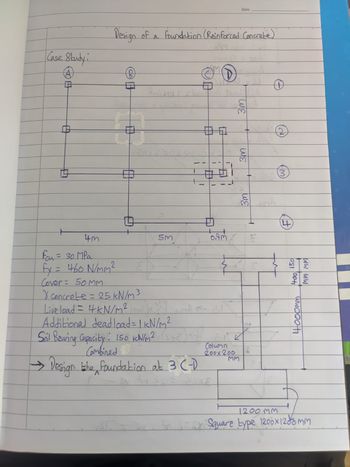 Date
Design of a Foundation (Reinforced Concrete)
Case Study:
A B C D
1
3m
2
3m
3
3m
4
4m 5m 0.9m
Fcu = 30 MPa
Fy = 460 N/mm²
Cover = 50 mm
γ concrete = 25 kN/m³
Live load = 4 kN/m²
Additional dead load = 1 kN/m²
Soil Bearing Capacity: 150 kN/m²
Combined
→ Design the ^ Foundation at 3 C-D
150 MM
400 MM
4000mm
Column
200x200
MM
1200 MM
Square type 1200x1200 MM